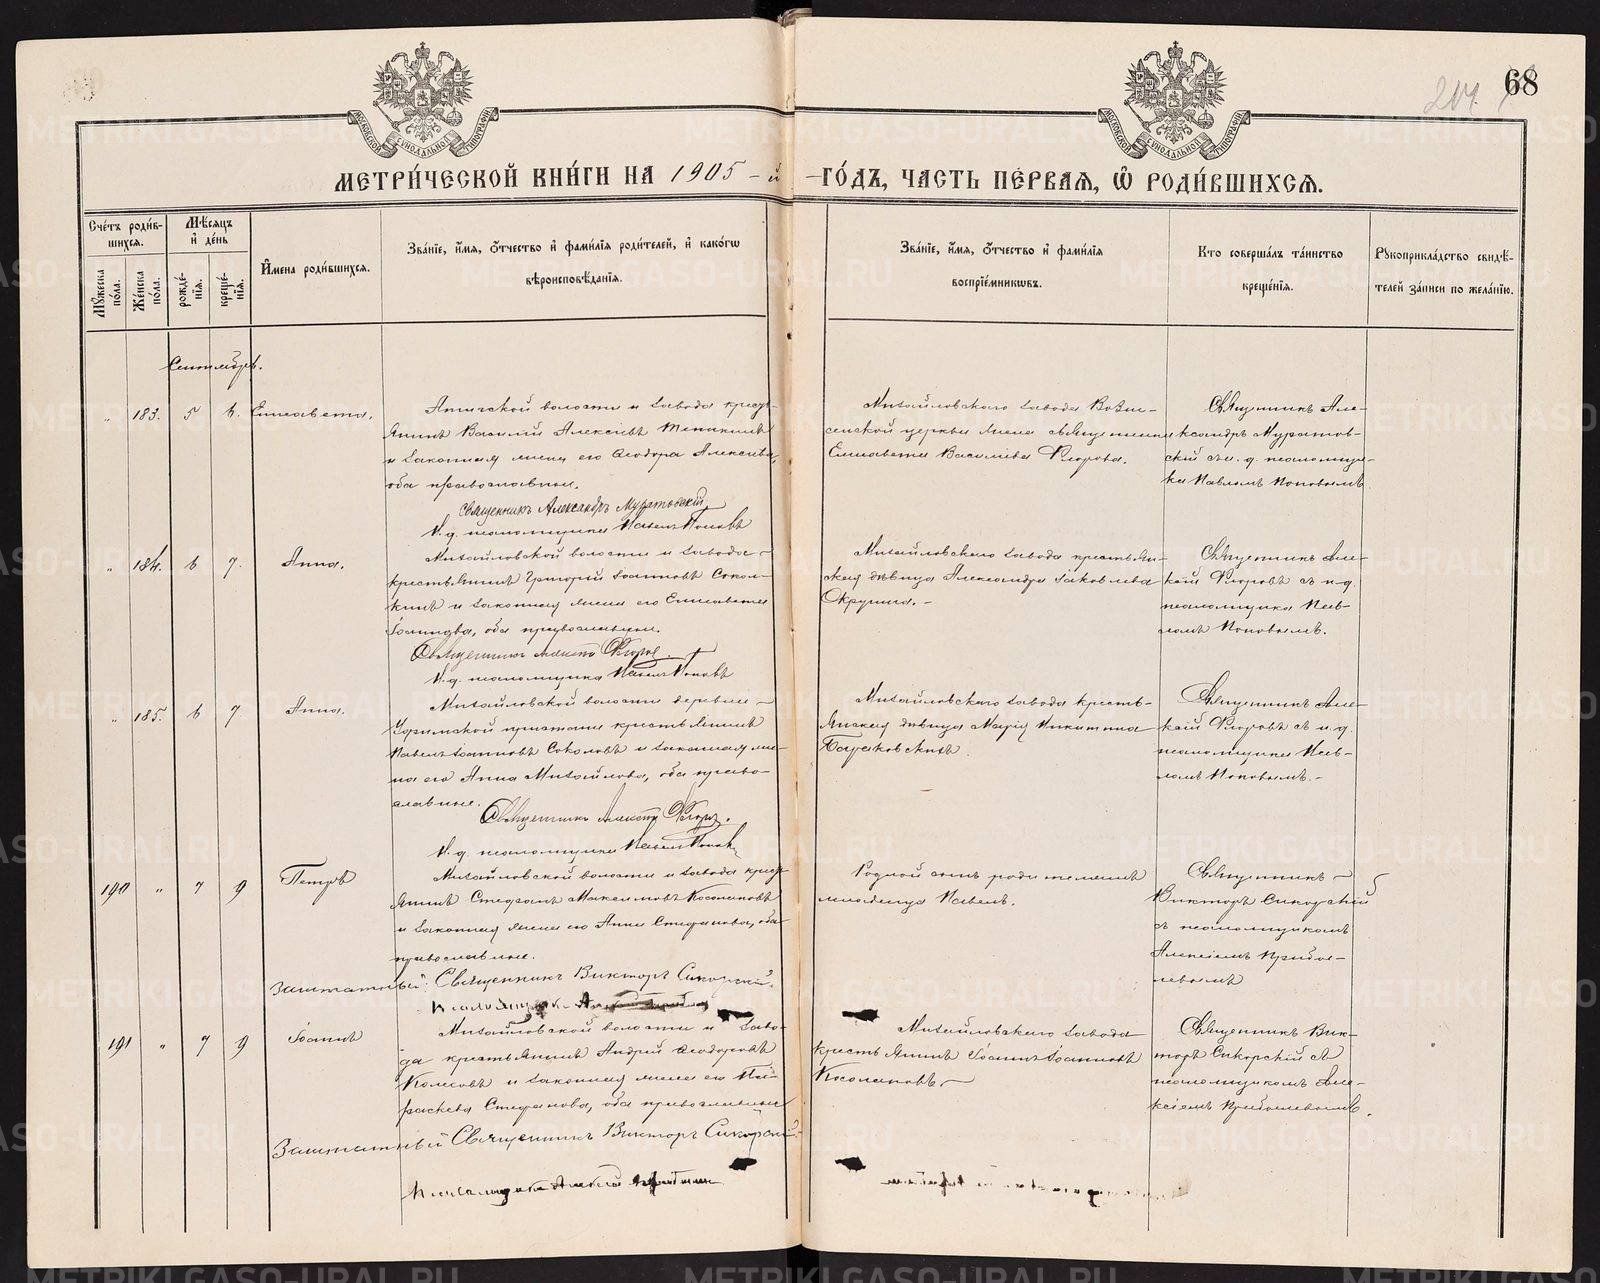 68
МОСКОВСКОЙ СѴНОДАЛЬНОЙ ТИПОГРАФІИ
МОСКОВСКОЙ СѴНОДАЛЬНОЙ ТИПОГРАФІИ
МЕТРИ́ЧЕСКОЙ КНИ́ГИ НА 1905-й ГО́ДЪ, ЧАСТЬ ПЕ́РВАЯ, Ѽ РОДИ́ВШИХСЯ.
Сче́тъ роди́в-
шихся.
Мѣсяцъ
и де́нь
Мꙋжеска по́ла.
Же́нска по́ла.
рожде́-
нїя.
креще́-
нїя.
Имена роди́вшихся.
Зва́нїе, и́мя, ѻ́тчество и фами́лїя роди́телей, и како́гѡ
вѣроисповѣ́данїя.
Зва́нїе, и́мя, ѻ́тчество и фами́лїя
воспрїе́мникѡвъ.
Кто соверша́лъ та́инство
креще́нїя.
Рꙋкоприкла́дство свидѣ́-
телей за́писи по жела́нїю.
Сентябрь.
" 183. 5 6. Елисавета.
волости и завода кресть-
янинъ Василій Алексіевъ
и законная жена его Ѳеодора Алексіева,
оба православные.
Священникъ Александръ Муратовскій
И. д. псаломщика Павелъ Поповъ
Михайловскаго завода Возне-
сенской церкви жена священника
Елисавета Василіева Флорова.
Священникъ Але-
ксандръ Муратов-
скій съ и. д. псаломщи-
ка Павломъ Поповымъ
" 184. 6 7. Анна.
Михайловской волости и завода
крестьянинъ Григорій Іоанновъ Сокол-
кинъ и законная жена его Елисавета
Іоаннова, оба православные.
Священникъ Алексій Флоровъ
И. д. псаломщика Павелъ Поповъ
Михайловскаго завода крестьян-
ская дѣвица Александра Іаковлева
Окрушна.
Священникъ Але-
ксій Флоровъ съ и. д.
псаломщика Пав-
ломъ Поповымъ.
" 185. 6 7. Анна.
Михайловской волости деревни
Уфимской пристани крестьянинъ
Павелъ Іоанновъ Соколовъ и законная же-
на его Анна Михайлова, оба право-
славные.
Священникъ Алексій Флоровъ.
И. д. псаломщика Павелъ Поповъ
Михайловскаго завода кресть-
янская дѣвица Марія Никитина
Священникъ Але-
ксій Флоровъ съ и. д.
псаломщика Пав-
ломъ Поповымъ.
190 " 7 9 Петръ
Михайловской волости и завода кресть-
янинъ Стефанъ Максимовъ Косолаповъ
и законная жена его Анна Стефанова, оба
православные.
Заштатный Священникъ Викторъ Сикорскій.
Родной сынъ родителей
младенца Павелъ.
Священникъ
Викторъ Сикорскій
съ псаломщикомъ
Алексіемъ Прибы-
левымъ
191 " 7 9 Іоаннъ
Михайловской волости и заво-
да крестьянинъ Андрей Ѳеодоровъ
Колесовъ и законная жена его Па-
раскева Стефанова, оба православные
Заштатный Священникъ Викторъ Сикорскій.
Михайловскаго завода
крестьянинъ Іоаннъ Іоанновъ
Косолаповъ.
Священникъ Вик-
торъ Сикорскій съ
псаломщикомъ Але-
ксіемъ Прибылевымъ.
METRIKI.GASO-URAL.RU